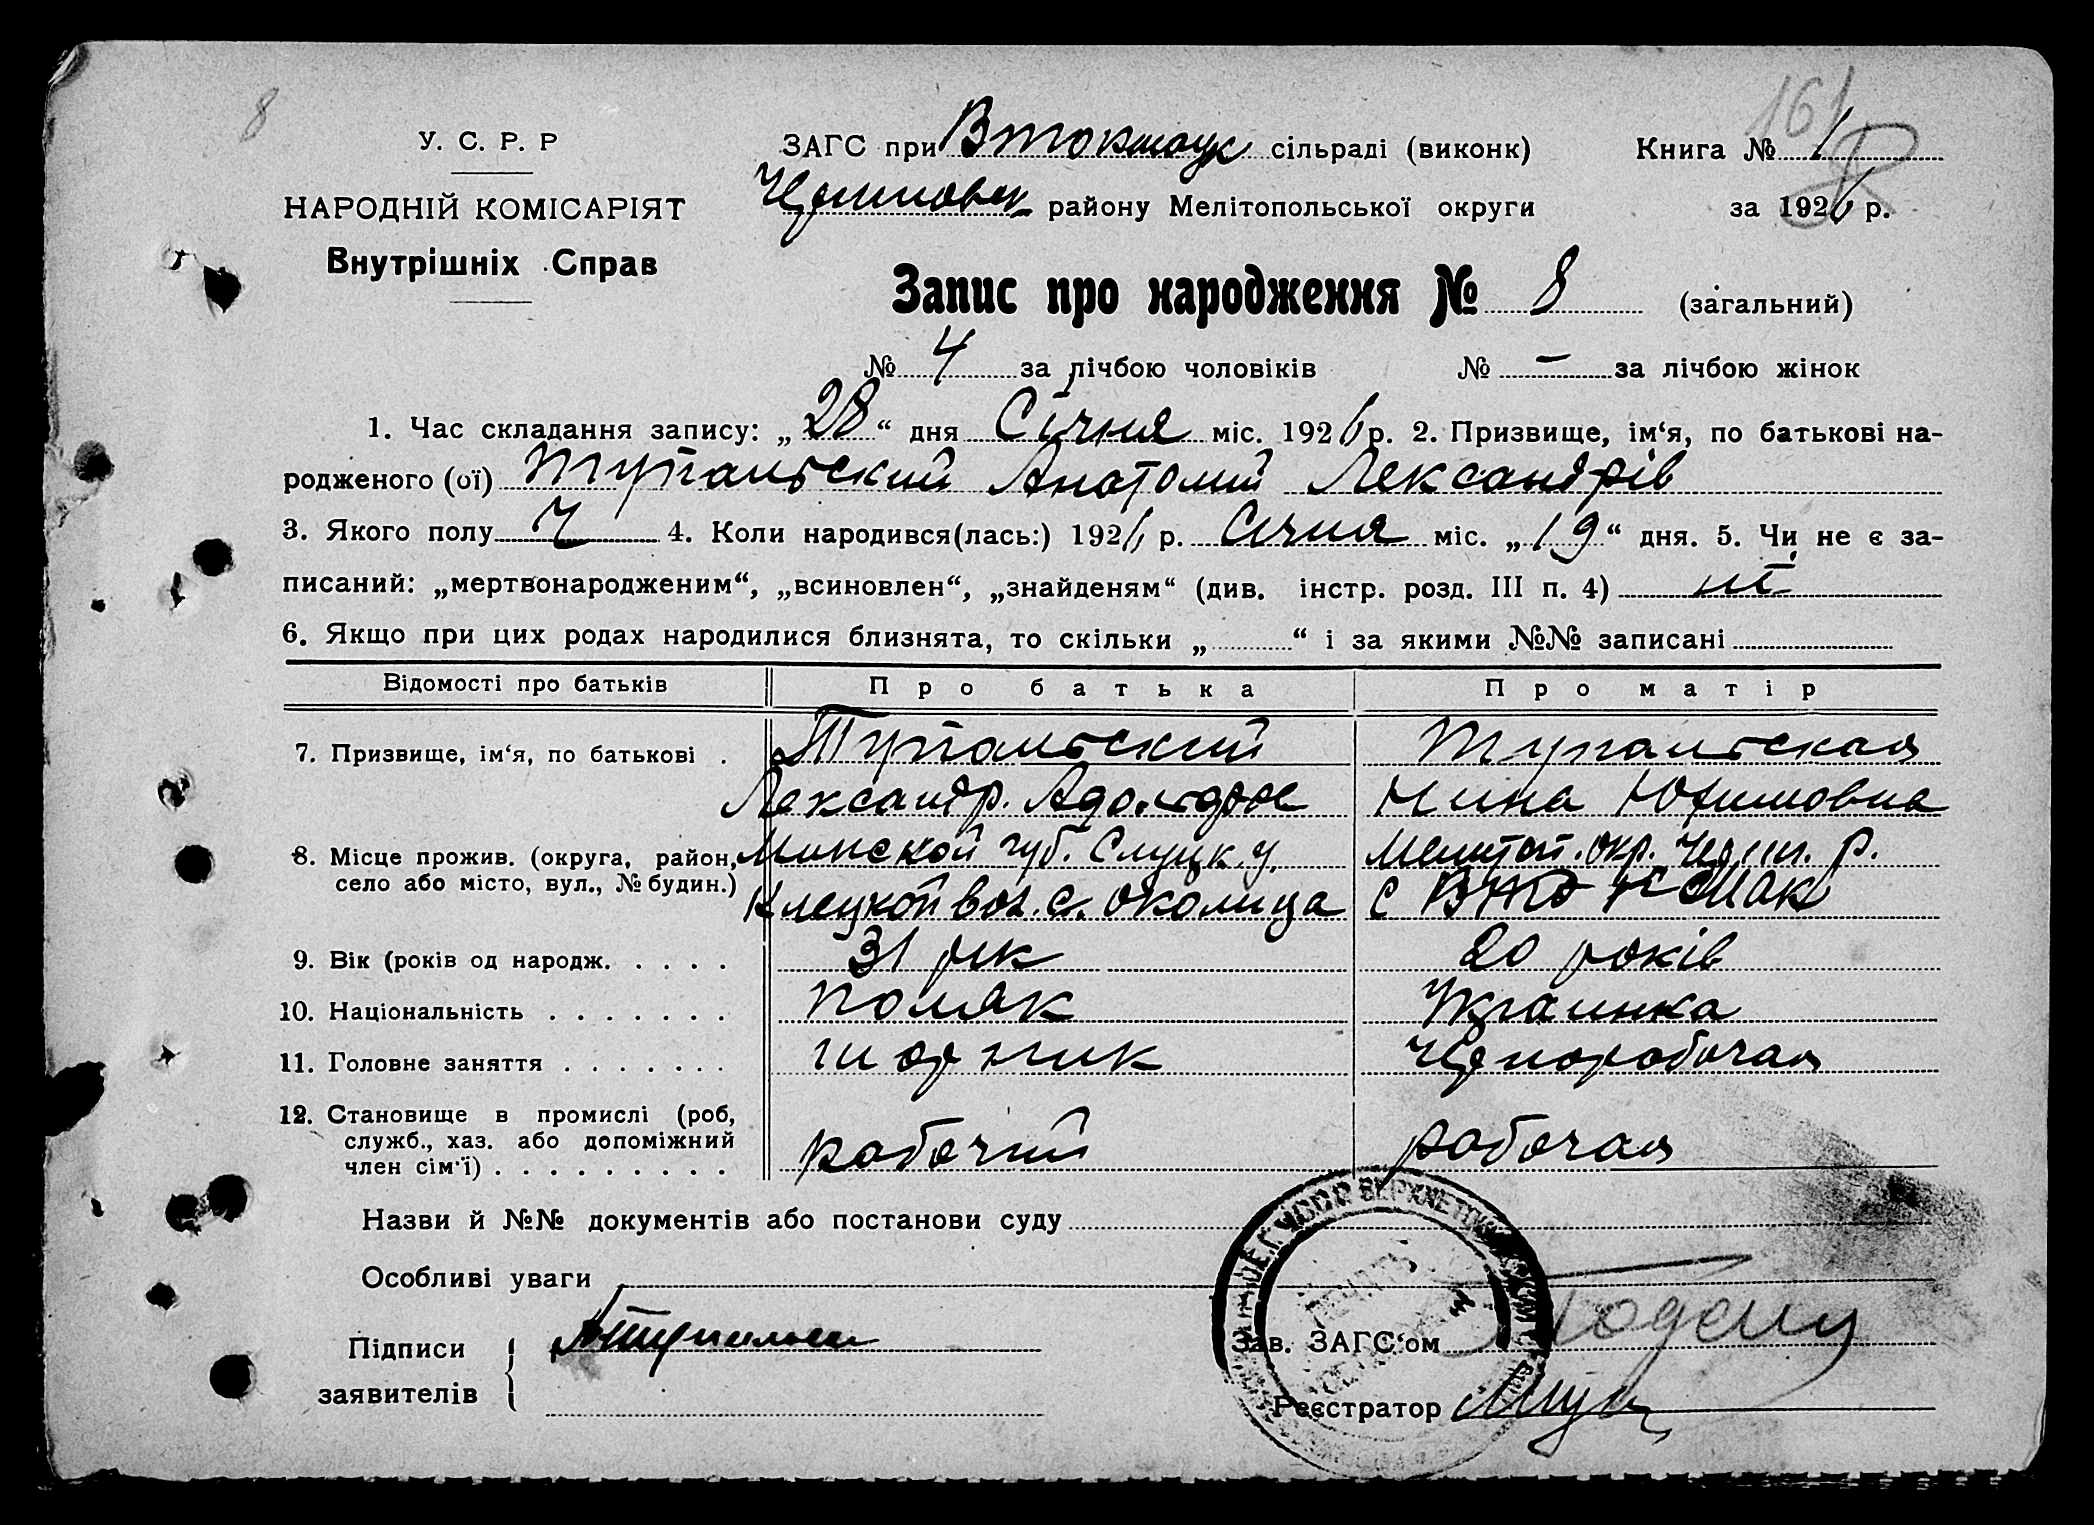 8
161
У. С. Р. Р
НАРОДНІЙ КОМІСАРІЯТ
Внутрішніх Справ
ЗАГС при Втокмацк сільраді (виконк) Книга № 1
району Мелітопольської округи за 1926 р.
Запис про народження № 8 (загальний)
№ 4 за лічбою чоловіків № – за лічбою жінок
1. Час складання запису: „28“ дня Січня міс. 1926 р. 2. Призвище, ім‘я, по батькові на-
родженого (ої) Анатолий Лександрів
3. Якого полу Ч 4. Коли народився(лась:) 1926 р. Січня міс. „19“ дня. 5. Чи не є за-
писаний: „мертвонародженим“, „всиновлен“, „знайденям“ (див. інстр. розд. III п. 4) ні
6. Якщо при цих родах народилися близнята, то скільки „ “ і за якими №№ записані
Відомості про батьків Про батька Про матір
7. Призвище, ім‘я, по батькові .
Лександр. Нина Юхимовна
8. Місце прожив. (округа, район, Минской губ. Слуцк. у. Мелитоп. окр. Черниг. р.
село або місто, вул., № будин.) Клецкой вол. с. Околица с Втокмак
9. Вік (років од народж. . . . . 31 рік 20 років
10. Національність . . . . . . . поляк Украинка
11. Головне заняття . . . . . . . шорник Черноробочая
12. Становище в промислі (роб,
служб., хаз. або допоміжний рабочий рабочая
член сім‘ї) . . . . . . . . .
Назви й №№ документів або постанови суду
Особливі уваги
Підписи Зав. ЗАГС‘ом
заявителів Реєстратор